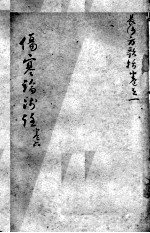 長沙方歌括卷之一
傷寒論淺註卷六